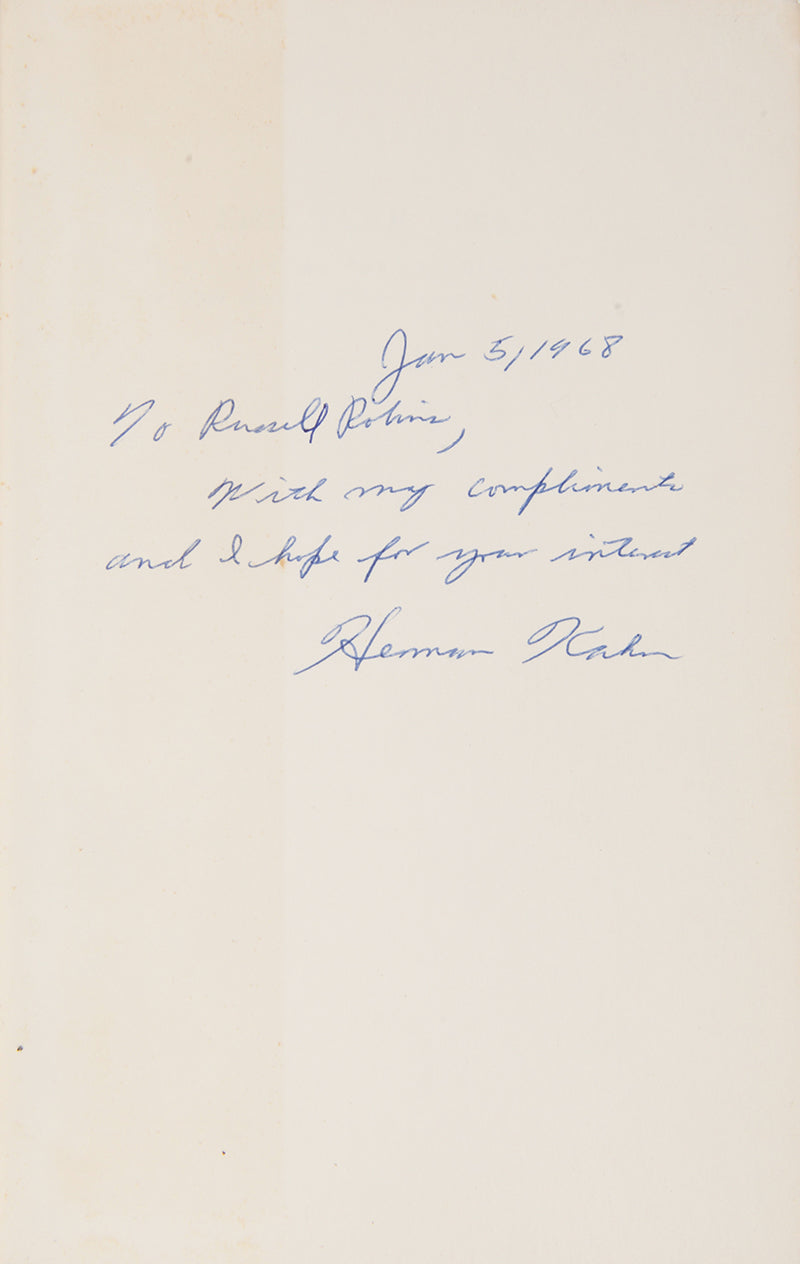 Jan 5, 1968
To Russell Robins,
With my compliments
and I hope for your interest
Herman Kahn